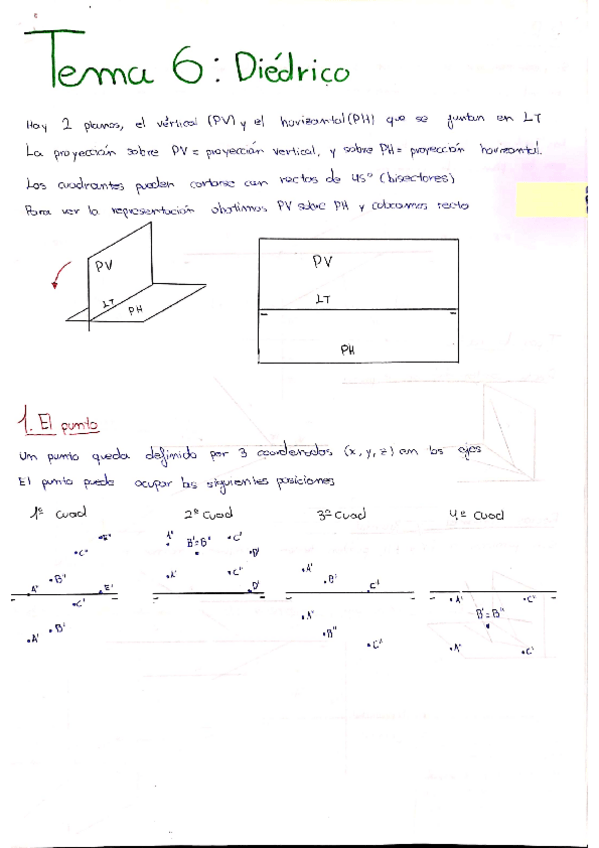 Tema 6: Diédrico
Hay 2 planos, el vértical (PV) y el horizontal (PH) que se juntan en LT
La proyección sobre PV = proyección vertical, y sobre PH = proyección horizontal.
Los cuadrantes pueden cortarse con rectas de 45° (bisectores)
Para ver la representación abatimos PV sobre PH y colocamos recto
PV
LT
PH
PV
LT
PH
1. El punto
Un punto queda definido por 3 coordenadas (x, y, z) con los ejes
El punto puede ocupar las siguientes posiciones
1º cuad
2º cuad
3º cuad
4º cuad
E" C" B" A" E' C' B' A'
A" B'=B" C" D" A' C" D'
A' B' C' A" B" C'
A' C" B'=B" A" C'